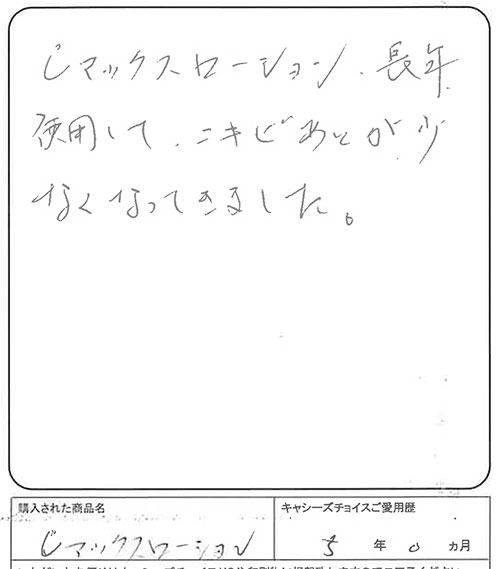 Cマックスローション、長年
使用して、ニキビあとが少
なくなってきました。
購入された商品名
キャシーズチョイスご愛用歴
Cマックスローション
5 年 0 ヵ月